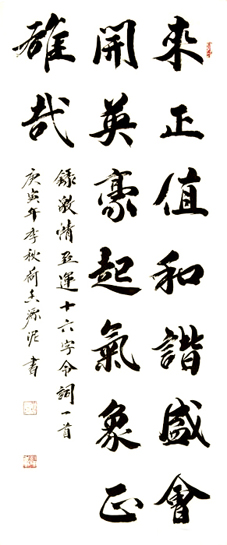 来正值和諧盛會
開英豪起氣象正
雄哉
錄激情亚運十六字令詞一首
庚寅年季秋荷香源泥書